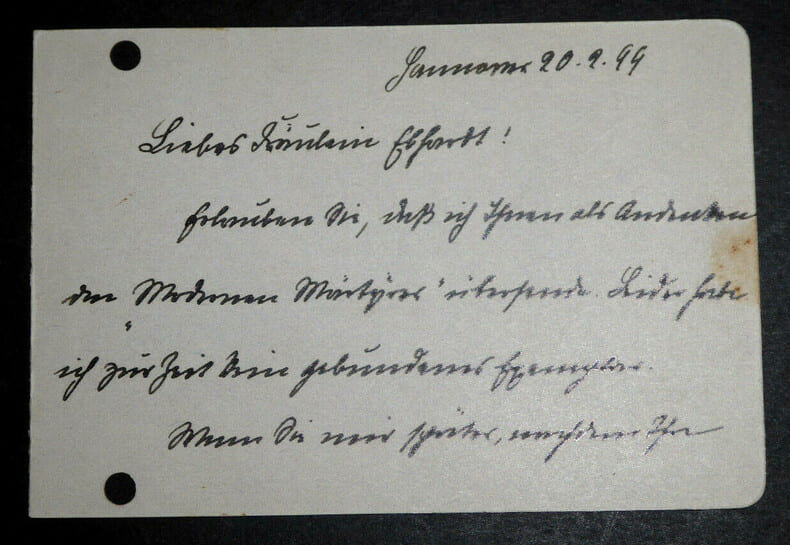 Hannover 20.2.99
Liebes Fräulein Ebhardt!
Erlauben Sie, daß ich Ihnen als Andenken
den "Modernen Märtyrer" übersende. Leider habe
ich zur Zeit kein gebundenes Exemplar.
Wenn Sie mir später, nachdem Ihre